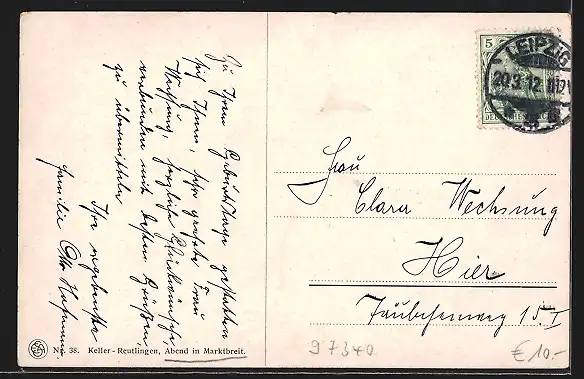 Zu Ihrem Geburtstage gestatten
sich Ihnen, sehr geehrte Frau
Wechsung, herzliche Glückwünsche,
verbunden mit besten Grüßen,
zu übermitteln
Ihre ergebenste
Familie Otto
No. 38. Keller-Reutlingen, Abend in Marktbreit.
5
LEIPZIG
20.3.12
Frau
Clara Wechsung
Hier
Täubchenweg 15 I
97340
€ 10.-